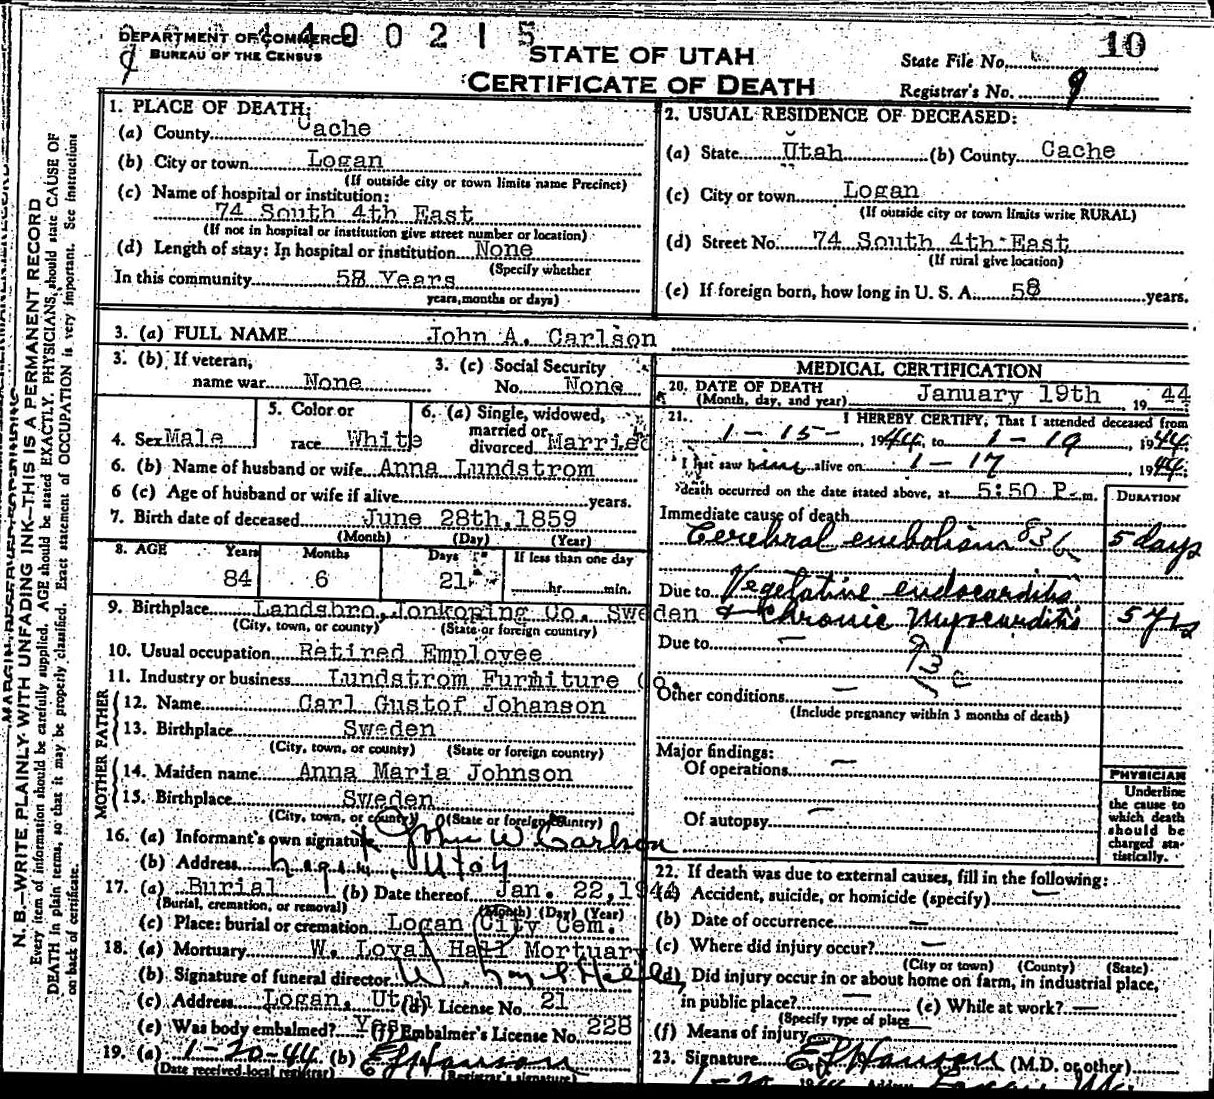 4400215
DEPARTMENT OF COMMERCE
BUREAU OF THE CENSUS
STATE OF UTAH
CERTIFICATE OF DEATH
State File No. 10
Registrar's No. 9
N. B.—WRITE PLAINLY WITH UNFADING INK—THIS IS A PERMANENT RECORD
Every item of information should be carefully supplied. AGE should be stated EXACTLY. PHYSICIANS, should state CAUSE OF
DEATH in plain terms, so that it may be properly classified. Exact statement of OCCUPATION is very important. See instructions
on back of certificate.
1. PLACE OF DEATH:
(a) County Cache
(b) City or town Logan
(If outside city or town limits name Precinct)
(c) Name of hospital or institution:
74 South 4th East
(If not in hospital or institution give street number or location)
(d) Length of stay: In hospital or institution None
(Specify whether
In this community 58 Years
years, months or days)
2. USUAL RESIDENCE OF DECEASED:
(a) State Utah (b) County Cache
(c) City or town Logan
(If outside city or town limits write RURAL)
(d) Street No. 74 South 4th East
(If rural give location)
(e) If foreign born, how long in U. S. A. 58 years.
3. (a) FULL NAME John A. Carlson
3. (b) If veteran, name war None
3. (c) Social Security No. None
4. Sex Male
5. Color or race White
6. (a) Single, widowed, married or divorced Married
6. (b) Name of husband or wife Anna Lundstrom
6 (c) Age of husband or wife if alive years.
7. Birth date of deceased June 28th, 1859
(Month) (Day) (Year)
8. AGE Years Months Days If less than one day
84 6 21 hr. min.
9. Birthplace Landsbro, Jonkoping Co. Sweden
(City, town, or county) (State or foreign country)
10. Usual occupation Retired Employee
11. Industry or business Lundstrom Furniture Co.
FATHER
12. Name Carl Gustof Johanson
13. Birthplace Sweden
(City, town, or county) (State or foreign country)
MOTHER
14. Maiden name Anna Maria Johnson
15. Birthplace Sweden
(City, town, or county) (State or foreign country)
16. (a) Informant's own signature John W Carlson
(b) Address Logan, Utah
17. (a) Burial (b) Date thereof Jan. 22, 1944
(Burial, cremation, or removal) (Month) (Day) (Year)
(c) Place: burial or cremation Logan City Cem.
18. (a) Mortuary W. Loyal Hall Mortuary
(b) Signature of funeral director W. Loyal Hall
(c) Address Logan, Utah (d) License No. 21
(e) Was body embalmed? Yes (f) Embalmer's License No. 228
19. (a) 1-20-44 (b) E L Hanson
(Date received local registrar) (Registrar's signature)
MEDICAL CERTIFICATION
20. DATE OF DEATH January 19th 19 44
(Month, day, and year)
21. I HEREBY CERTIFY, That I attended deceased from
1-15-, 1944, to 1-19, 1944.
I last saw him alive on 1-17, 1944.
death occurred on the date stated above, at 5:50 P. m.
DURATION
Immediate cause of death
Cerebral embolism 83b 5 days
Due to Vegetative endocarditis
& Chronic Myocarditis 5 yrs
Due to —
93c
Other conditions —
(Include pregnancy within 3 months of death)
Major findings:
Of operations —
Of autopsy —
PHYSICIAN
Underline
the cause to
which death
should be
charged sta-
tistically.
22. If death was due to external causes, fill in the following:
(a) Accident, suicide, or homicide (specify) —
(b) Date of occurrence —
(c) Where did injury occur? —
(City or town) (County) (State)
(d) Did injury occur in or about home on farm, in industrial place,
in public place? — (e) While at work? —
(Specify type of place
(f) Means of injury
23. Signature E L Hanson (M.D. or other)
1-20 1944 Address Logan Ut.